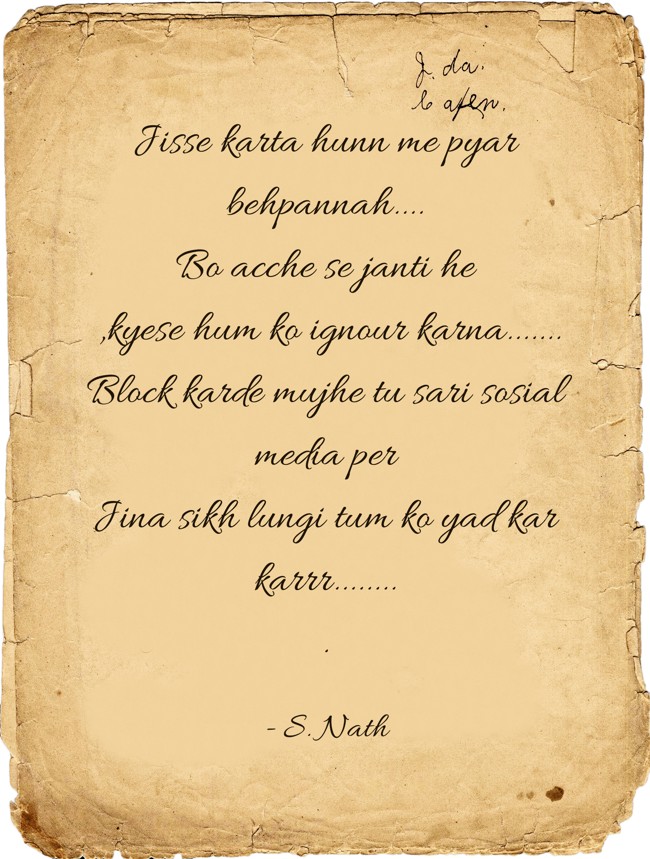 J. da.
Jisse karta hunn me pyar
behpannah....
Bo acche se janti he
,kyese hum ko ignour karna.......
Block karde mujhe tu sari sosial
media per
Jina sikh lungi tum ko yad kar
karrr........
.
- S. Nath